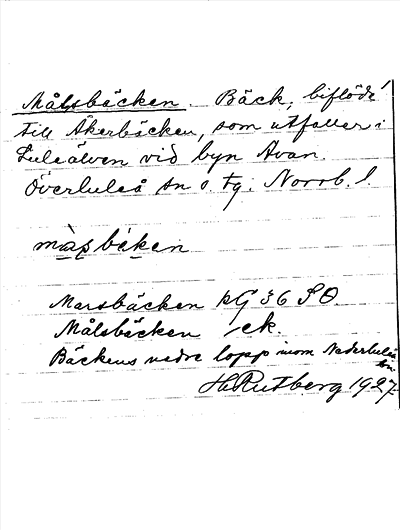 Målsbäcken. Bäck, biflöde
till Åkerbäcken, som utfaller i
Luleälven vid byn Avan.
Överluleå sn o. tg. Norrb. l.
màsbäken
Marsbäcken kG 36 SO.
Målsbäcken ek.
Bäckens nedre lopp inom Nederluleå
sn.
H Rutberg 1927